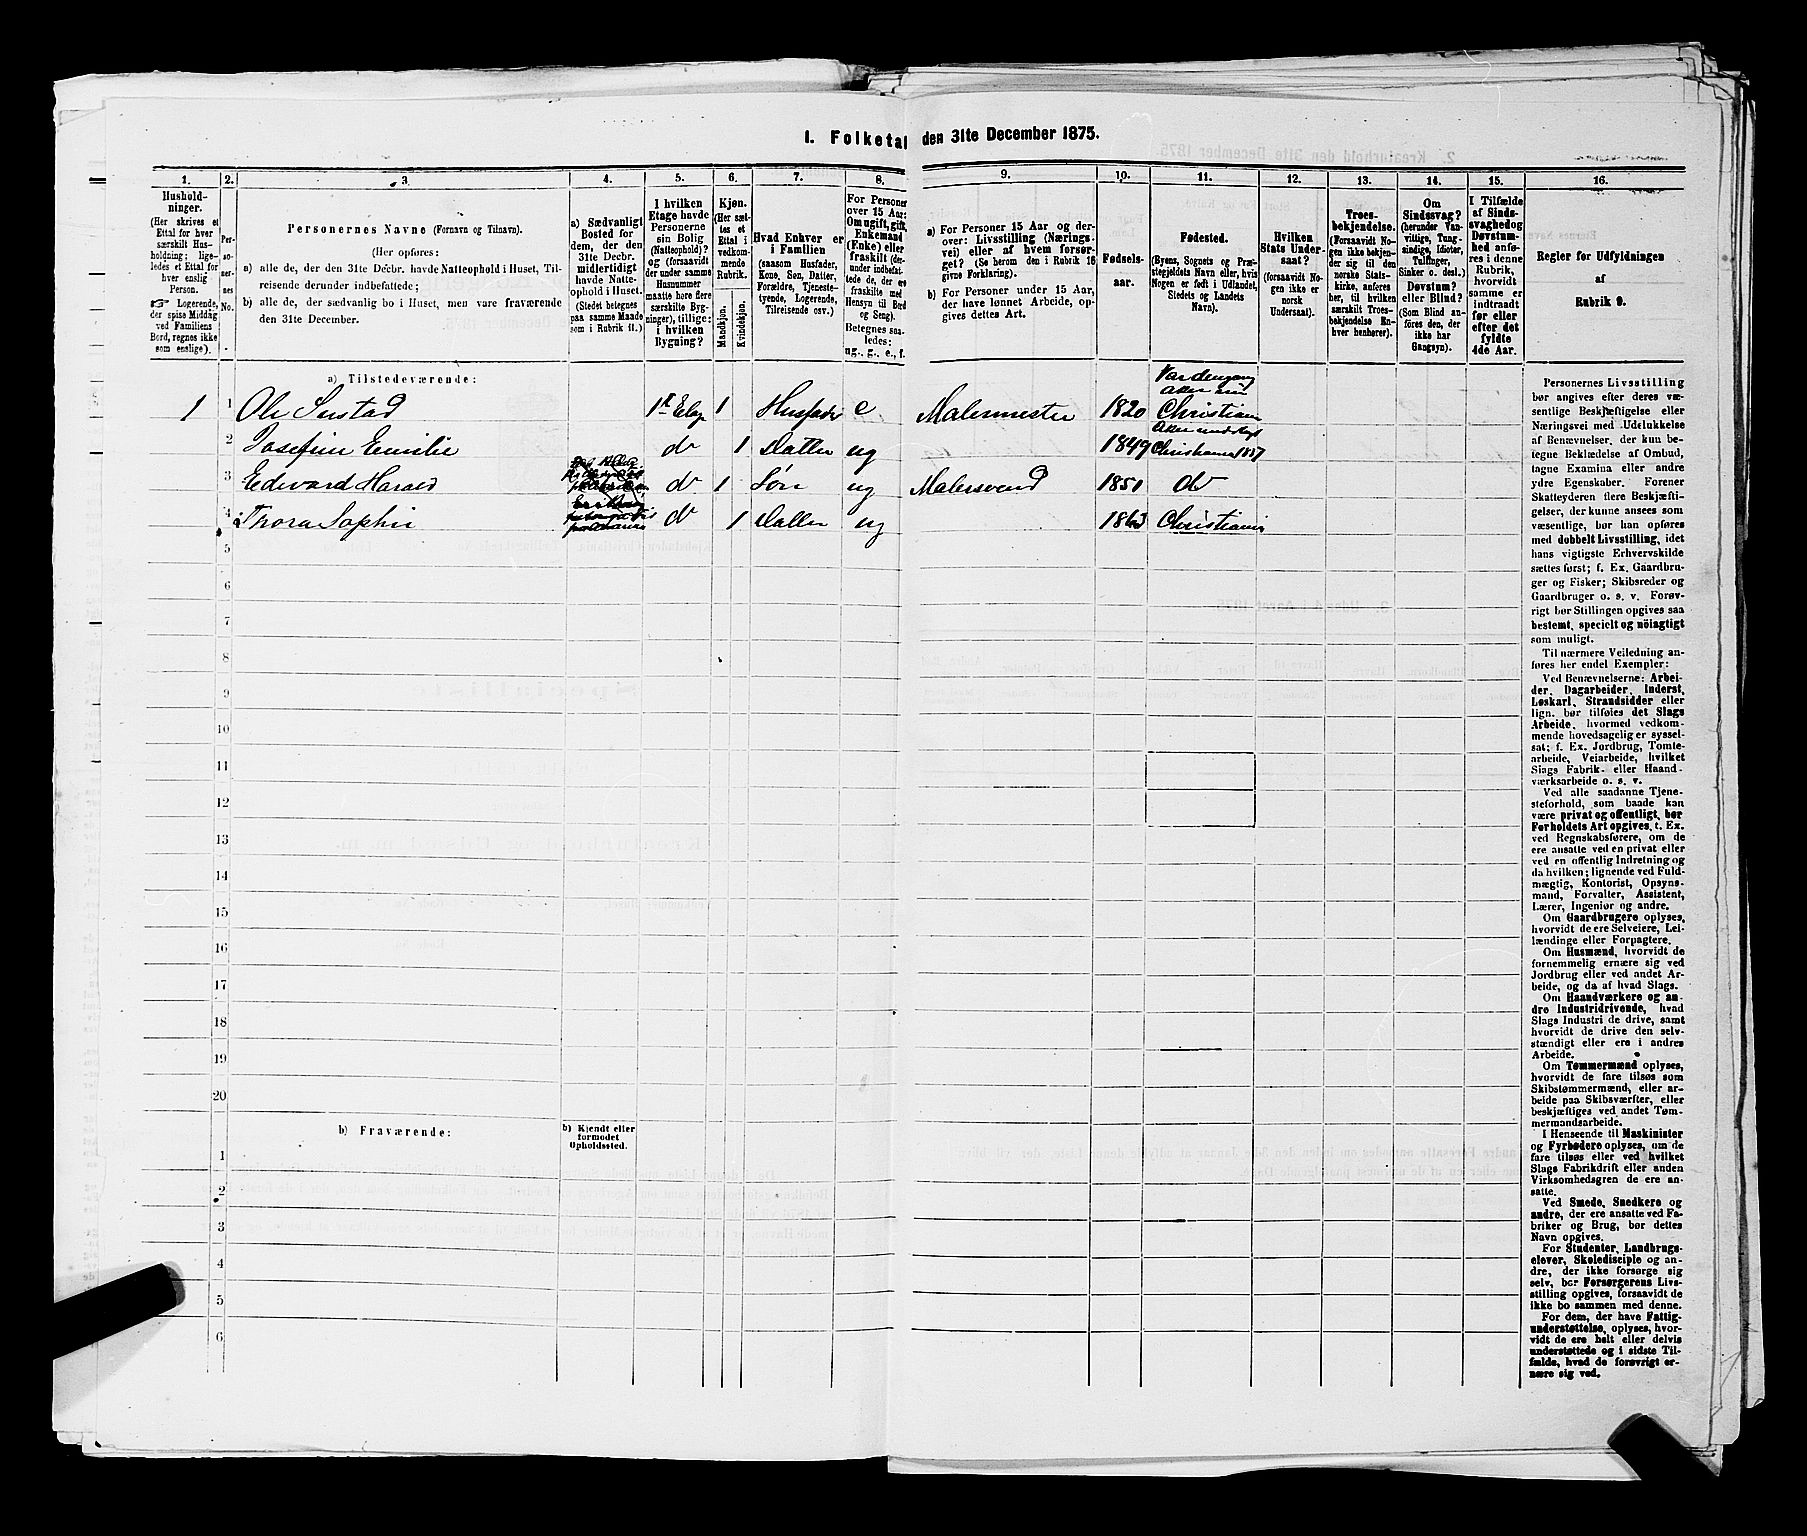 1. Folketal den 31te December 1875.
1.
2.
3.
4.
5.
6.
7.
8.
9.
10.
11.
12.
13.
14.
15.
16.
Hushold-
ninger.
(Her skrives et
Ettal for hver
særskilt Hus-
holdning; lige-
ledes et Ettal for
hver enslig
Person.
☞ Logerende,
der spise Middag
ved Familiens
Bord, regnes ikke
som enslige).
Per-
so-
ner-
nes
No.
Personernes Navne (Fornavn og Tilnavn).
(Her opføres:
a) alle de, der den 31te Decbr. havde Natteophold i Huset, Til-
reisende derunder indbefattede;
b) alle de, der sædvanlig bo i Huset, men vare fraværende
den 31te December.
a) Sædvanligt
Bosted for
dem, der den
31te Decbr.
midlertidigt
havde Natte-
ophold i Huset.
(Stedet betegnes
paa samme Maade
som i Rubrik 11.)
I hvilken
Etage havde
Personerne
sin Bolig
(Natteophold)?
og (forsaavidt
der under samme
Husnummer
maatte høre flere
særskilte Byg-
ninger), tillige:
i hvilken
Bygning?
Kjøn.
(Her sæt-
tes et
Ettal i
vedkom-
mende
Rubrik.
Mandkjøn.
Kvindekjøn.
Hvad Enhver er
i Familien
(saasom Husfader,
Kone, Søn, Datter,
Forældre, Tjeneste-
tyende, Logerende,
Tilreisende osv.)
For Personer
over 15 Aar:
Om ugift, gift,
Enkemand
(Enke) eller
fraskilt (der-
under indbefat-
tede de, der ere
fraskilte med
Hensyn til Bord
og Seng).
Betegnes saa-
ledes:
ug., g., e., f.
a) For Personer 15 Aar og der-
over: Livsstilling (Nærings-
vei) eller af hvem forsør-
get? (Se herom den i Rubrik 16
givne Forklaring).
b) For Personer under 15 Aar,
der have lønnet Arbeide, op-
gives dettes Art.
Fødsels-
aar.
Fødested.
(Byens, Sognets og Præ-
stegjeldets Navn eller, hvis
Nogen er født i Udlandet,
Stedets og Landets
Navn).
Hvilken
Stats Under-
saat?
(forsaavidt No-
gen ikke er
norsk
Undersaat).
Troes-
bekjendelse.
(Forsaavidt No-
gen ikke bekjen-
der sig til den
norske Stats-
kirke, anføres
her, til hvilken
særskilt Troes-
bekjendelse En-
hver henhører).
Om
Sindssvag?
(herunder Van-
vittige, Tung-
sindige, Idioter,
Tullinger,
Sinker o. desl.)
Døvstum?
eller Blind?
(Som Blind an-
føres den, der
ikke har
Gangsyn).
I Tilfælde
af Sinds-
svaghed og
Døvstum-
hed anfø-
res i denne
Rubrik,
hvorvidt
samme er
indtraadt
før eller
efter det
fyldte
4de Aar.
Regler for Udfyldningen
af
Rubrik 9.
a) Tilstedeværende:
1 1 1 Husfader e Malermester 1820 Christiania
2 Josefine Emilie do 1 Datter ug 1849 Christiania 1857
3 Edvard Harald do 1 Søn ug Malersvend 1851 do
4 Thora Sophie do 1 Datter ug 1863 Christiania
5
6
7
8
9
10
11
12
13
14
15
16
17
18
19
20
b) Fraværende:
b) Kjendt eller
formodet
Opholdssted.
1
2
3
4
5
6
Personernes Livsstilling
bør angives efter deres væ-
sentlige Beskjæftigelse eller
Næringsvei med Udelukkelse
af Benævnelser, der kun be-
tegne Beklædelse af Ombud,
tagne Examina eller andre
ydre Egenskaber. Forener
Skatteyderen flere Beskjæfti-
gelser, der kunne ansees som
væsentlige, bør han opføres
med dobbelt Livsstilling, idet
hans vigtigste Erhvervskilde
sættes først; f. Ex. Gaardbru-
ger og Fisker; Skibsreder og
Gaardbruger o. s. v. Forøv-
rigt bør Stillingen opgives saa
bestemt, specielt og nöiagtigt
som muligt.
Til nærmere Veiledning an-
føres her endel Exempler:
Ved Benævnelserne: Arbei-
der, Dagarbeider, Inderst,
Løskarl, Strandsidder eller
lign. bør tilføies det Slags
Arbeide, hvormed vedkom-
mende hovedsagelig er syssel-
sat; f. Ex. Jordbrug, Tomte-
arbeide, Veiarbeide, hvilket
Slags Fabrik- eller Haand-
værksarbeide o. s. v.
Ved alle saadanne Tjene-
steforhold, som baade kan
være privat og offentligt, bør
Forholdets Art opgives, t. Ex.
ved Regnskabsførere, om de
ere ansatte ved en privat eller
ved en offentlig Indretning og
da hvilken; lignende ved Fuld-
mægtig, Kontorist, Opsyns-
mand, Forvalter, Assistent,
Lærer, Ingeniør og andre.
Om Gaardbrugere oplyses,
hvorvidt de ere Selveiere, Lei-
lændinge eller Forpagtere.
Om Husmænd, hvorvidt de
fornemmelig ernære sig ved
Jordbrug eller ved andet Ar-
beide, og da af hvad Slags.
Om Haandværkere og an-
dre Industridrivende, hvad
Slags Industri de drive, samt
hvorvidt de drive den selv-
stændigt eller ere i andres
Arbeide.
Om Tømmermænd oplyses,
hvorvidt de fare tilsøs som
Skibstømmermænd, eller ar-
beide paa Skibsværfter, eller
beskjæftiges ved andet Tøm-
mermandsarbeide.
I Henseende til Maskinister
og Fyrbødere oplyses, om de
fare tilsøs eller ved hvilket
Slags Fabrikdrift eller anden
Virksomhedsgren de ere an-
satte.
Ved Smede, Snedkere og
andre, der ere ansatte ved Fa-
briker og Brug, bør dettes
Navn opgives.
For Studenter, Landbrugs-
elever, Skoledisciple og an-
dre, der ikke forsørge sig
selv, bør Forsørgerens Livs-
stilling opgives, forsaavidt de
ikke bo sammen med denne.
For dem, der have Fattig-
understøttelse, oplyses, hvor-
vidt de ere helt eller delvis
understøttede og i sidste Til-
fælde, hvad de forøvrigt er-
nære sig ved.